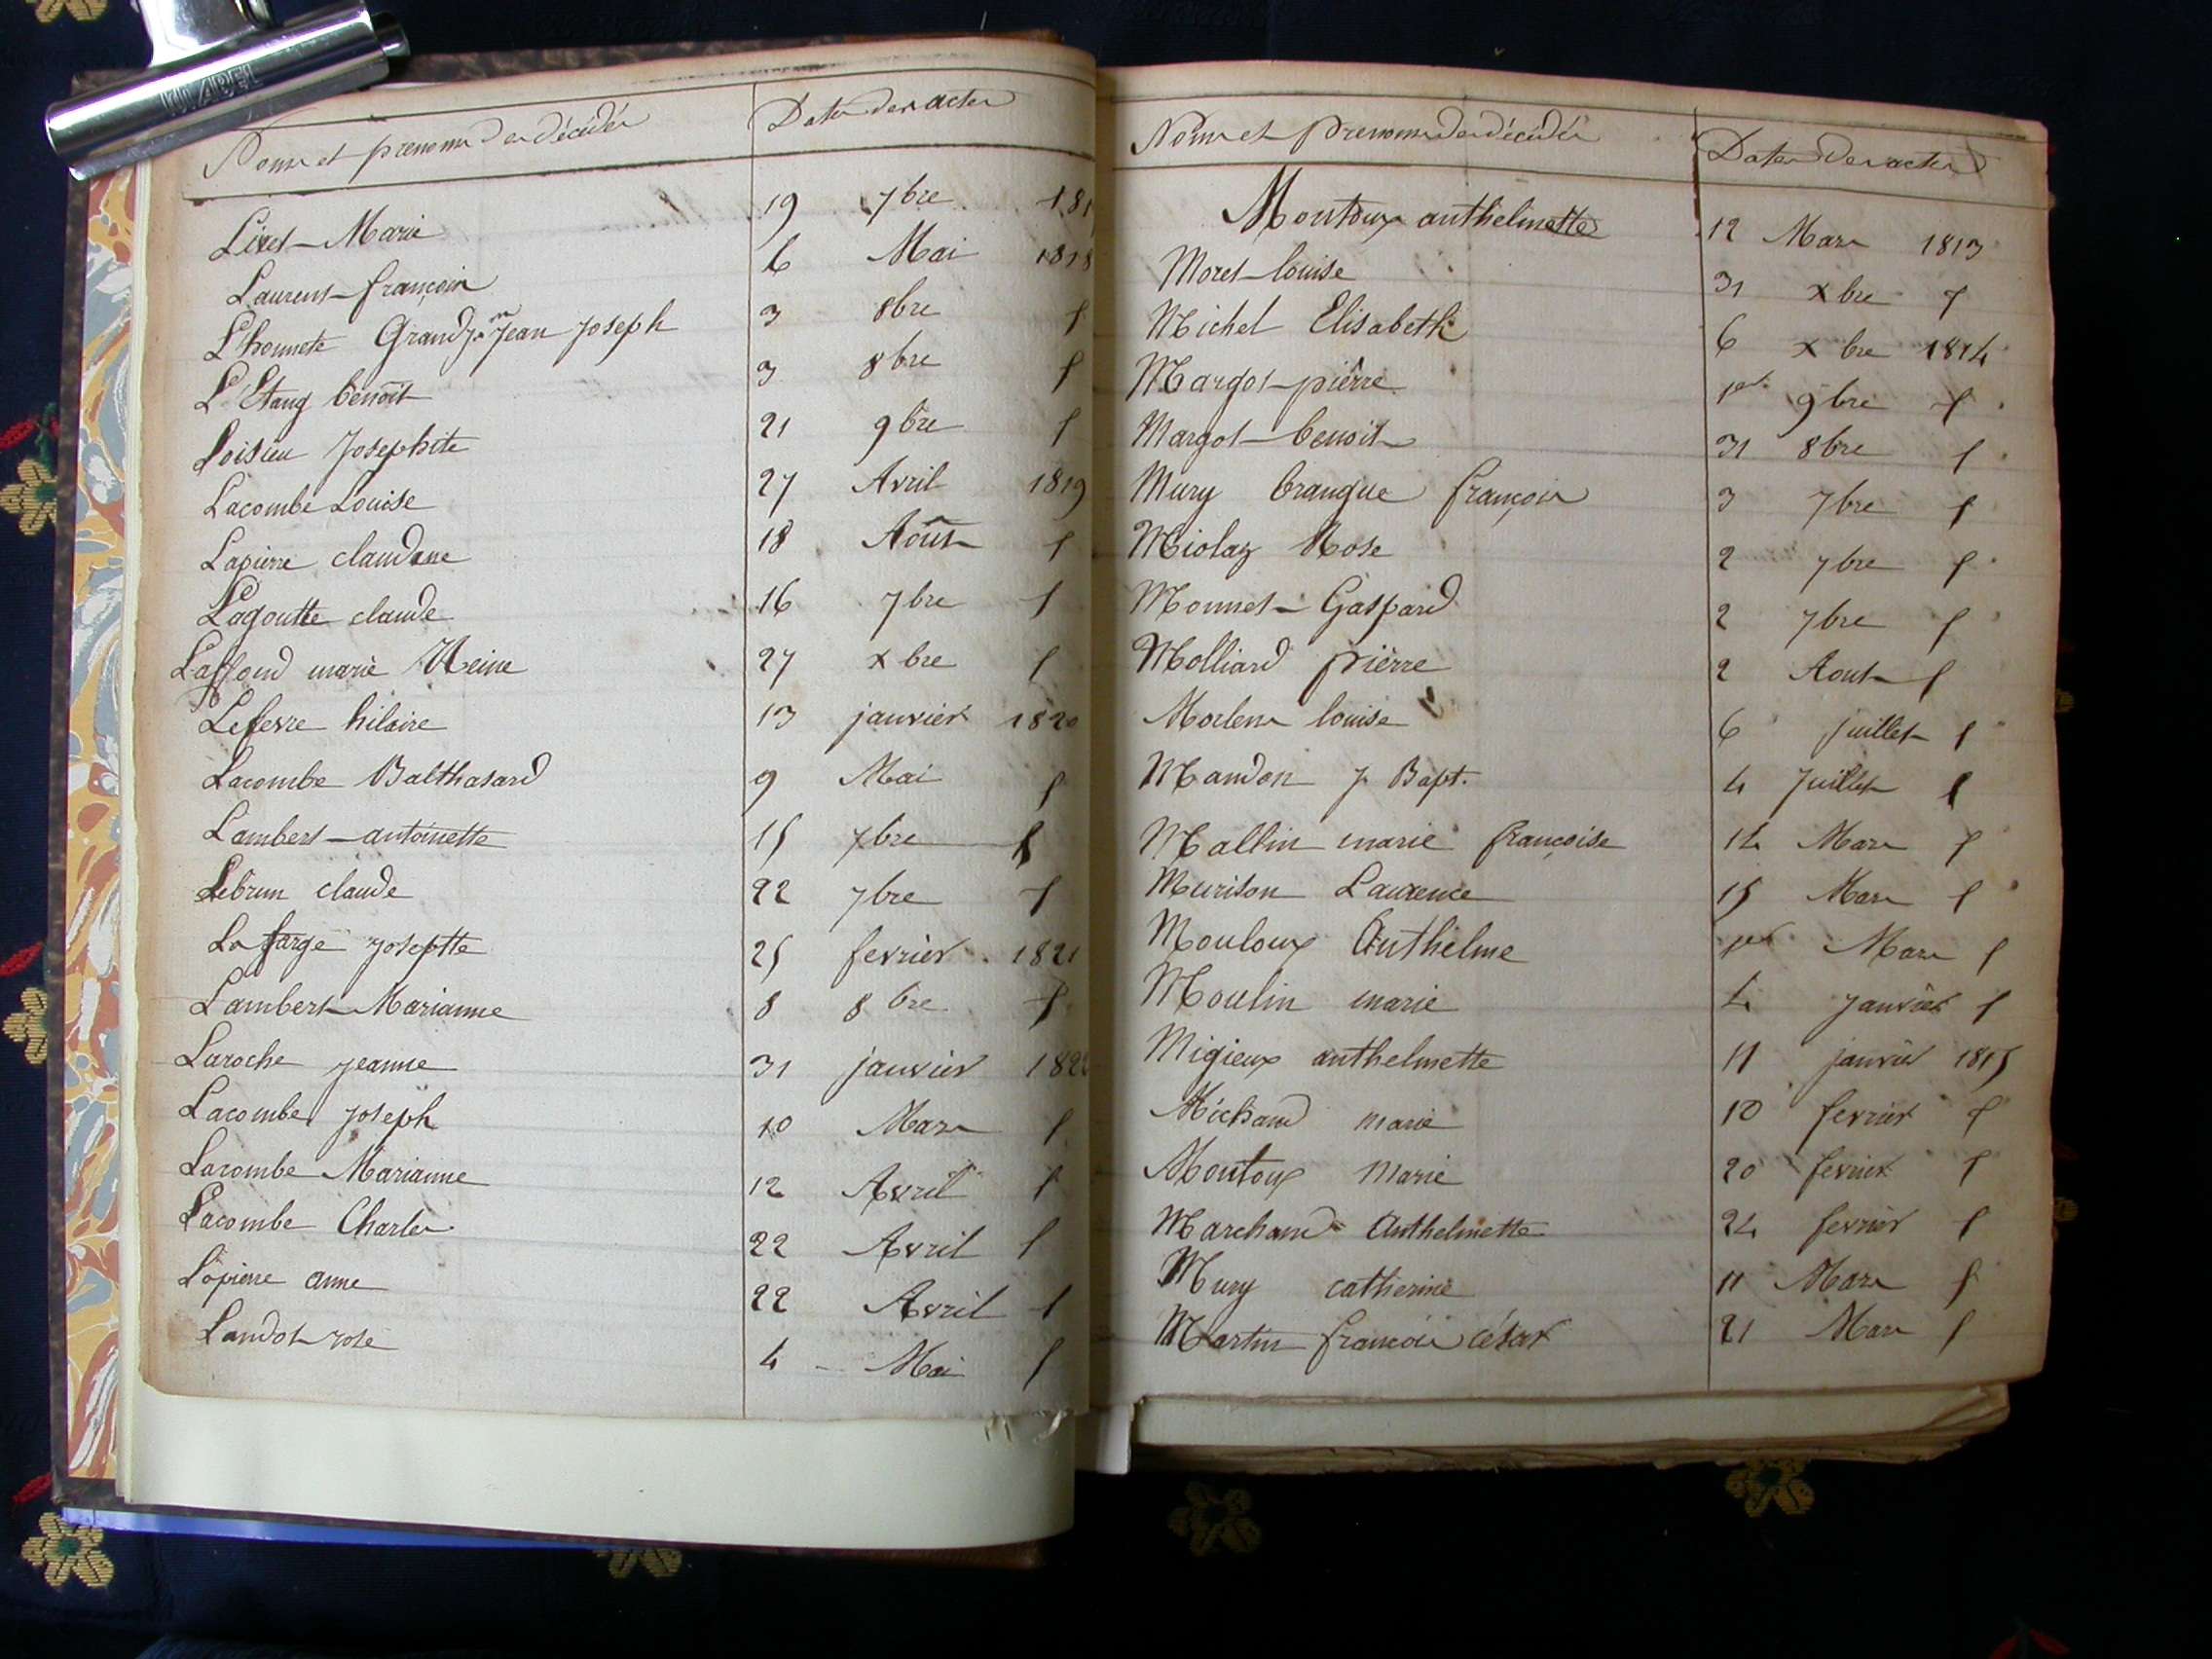 Noms et prenoms des décédés Dates des actes
Livet Marie 19 7bre 181
Laurent françois 6 Mai 1818
L'honnete Grand Jean Joseph 3 8bre f
L'Etang benoît 3 8bre f
Loisieu Josephite 21 9bre f
Lacombe Louise 27 Avril 1819
Lapierre claudine 18 Août f
Lagoutte claude 16 7bre f
Laffond marie Reine 27 xbre f
Lefevre hilaire 13 janvier 1820
Lacombe Balthasard 9 Mai f
Lambert antoinette 15 7bre f
Lebrun claude 22 7bre f
La farge josephte 25 fevrier 1821
Lambert Marianne 8 8bre f
Laroche jeanne 31 janvier 182
Lacombe joseph 10 Mars f
Lacombe Marianne 12 Avril f
Lacombe Charles 22 Avril f
Lapierre anne 22 Avril f
Landot rose 4 Mai f
Noms et prenoms des décédés Dates des actes
Montoux anthelmette 12 Mars 1813
Moret louise 31 xbre f
Michel Elisabeth 6 xbre 1814
Margot pierre 1er 9bre f
Margot benoit 31 8bre f
Mury brangue françois 3 7bre f
Miolaz Rose 2 7bre f
Monnet Gaspard 2 7bre f
Molliard pierre 2 Aout f
Morlens louise 6 juillet f
Mandon j. Bapt. 4 Juillet f
Mallin marie françoise 14 Mars f
Murison Laurence 15 Mars f
Mouloux Anthelme 1er Mars f
Moulin marie 4 janvier f
Migieux anthelmette 11 janvier 1815
Michaud marie 10 fevrier f
Montoux Marie 20 fevrier f
Marchand Anthelmette 24 fevrier f
Mury catherine 11 Mars f
Martin françois césar 21 Mars f